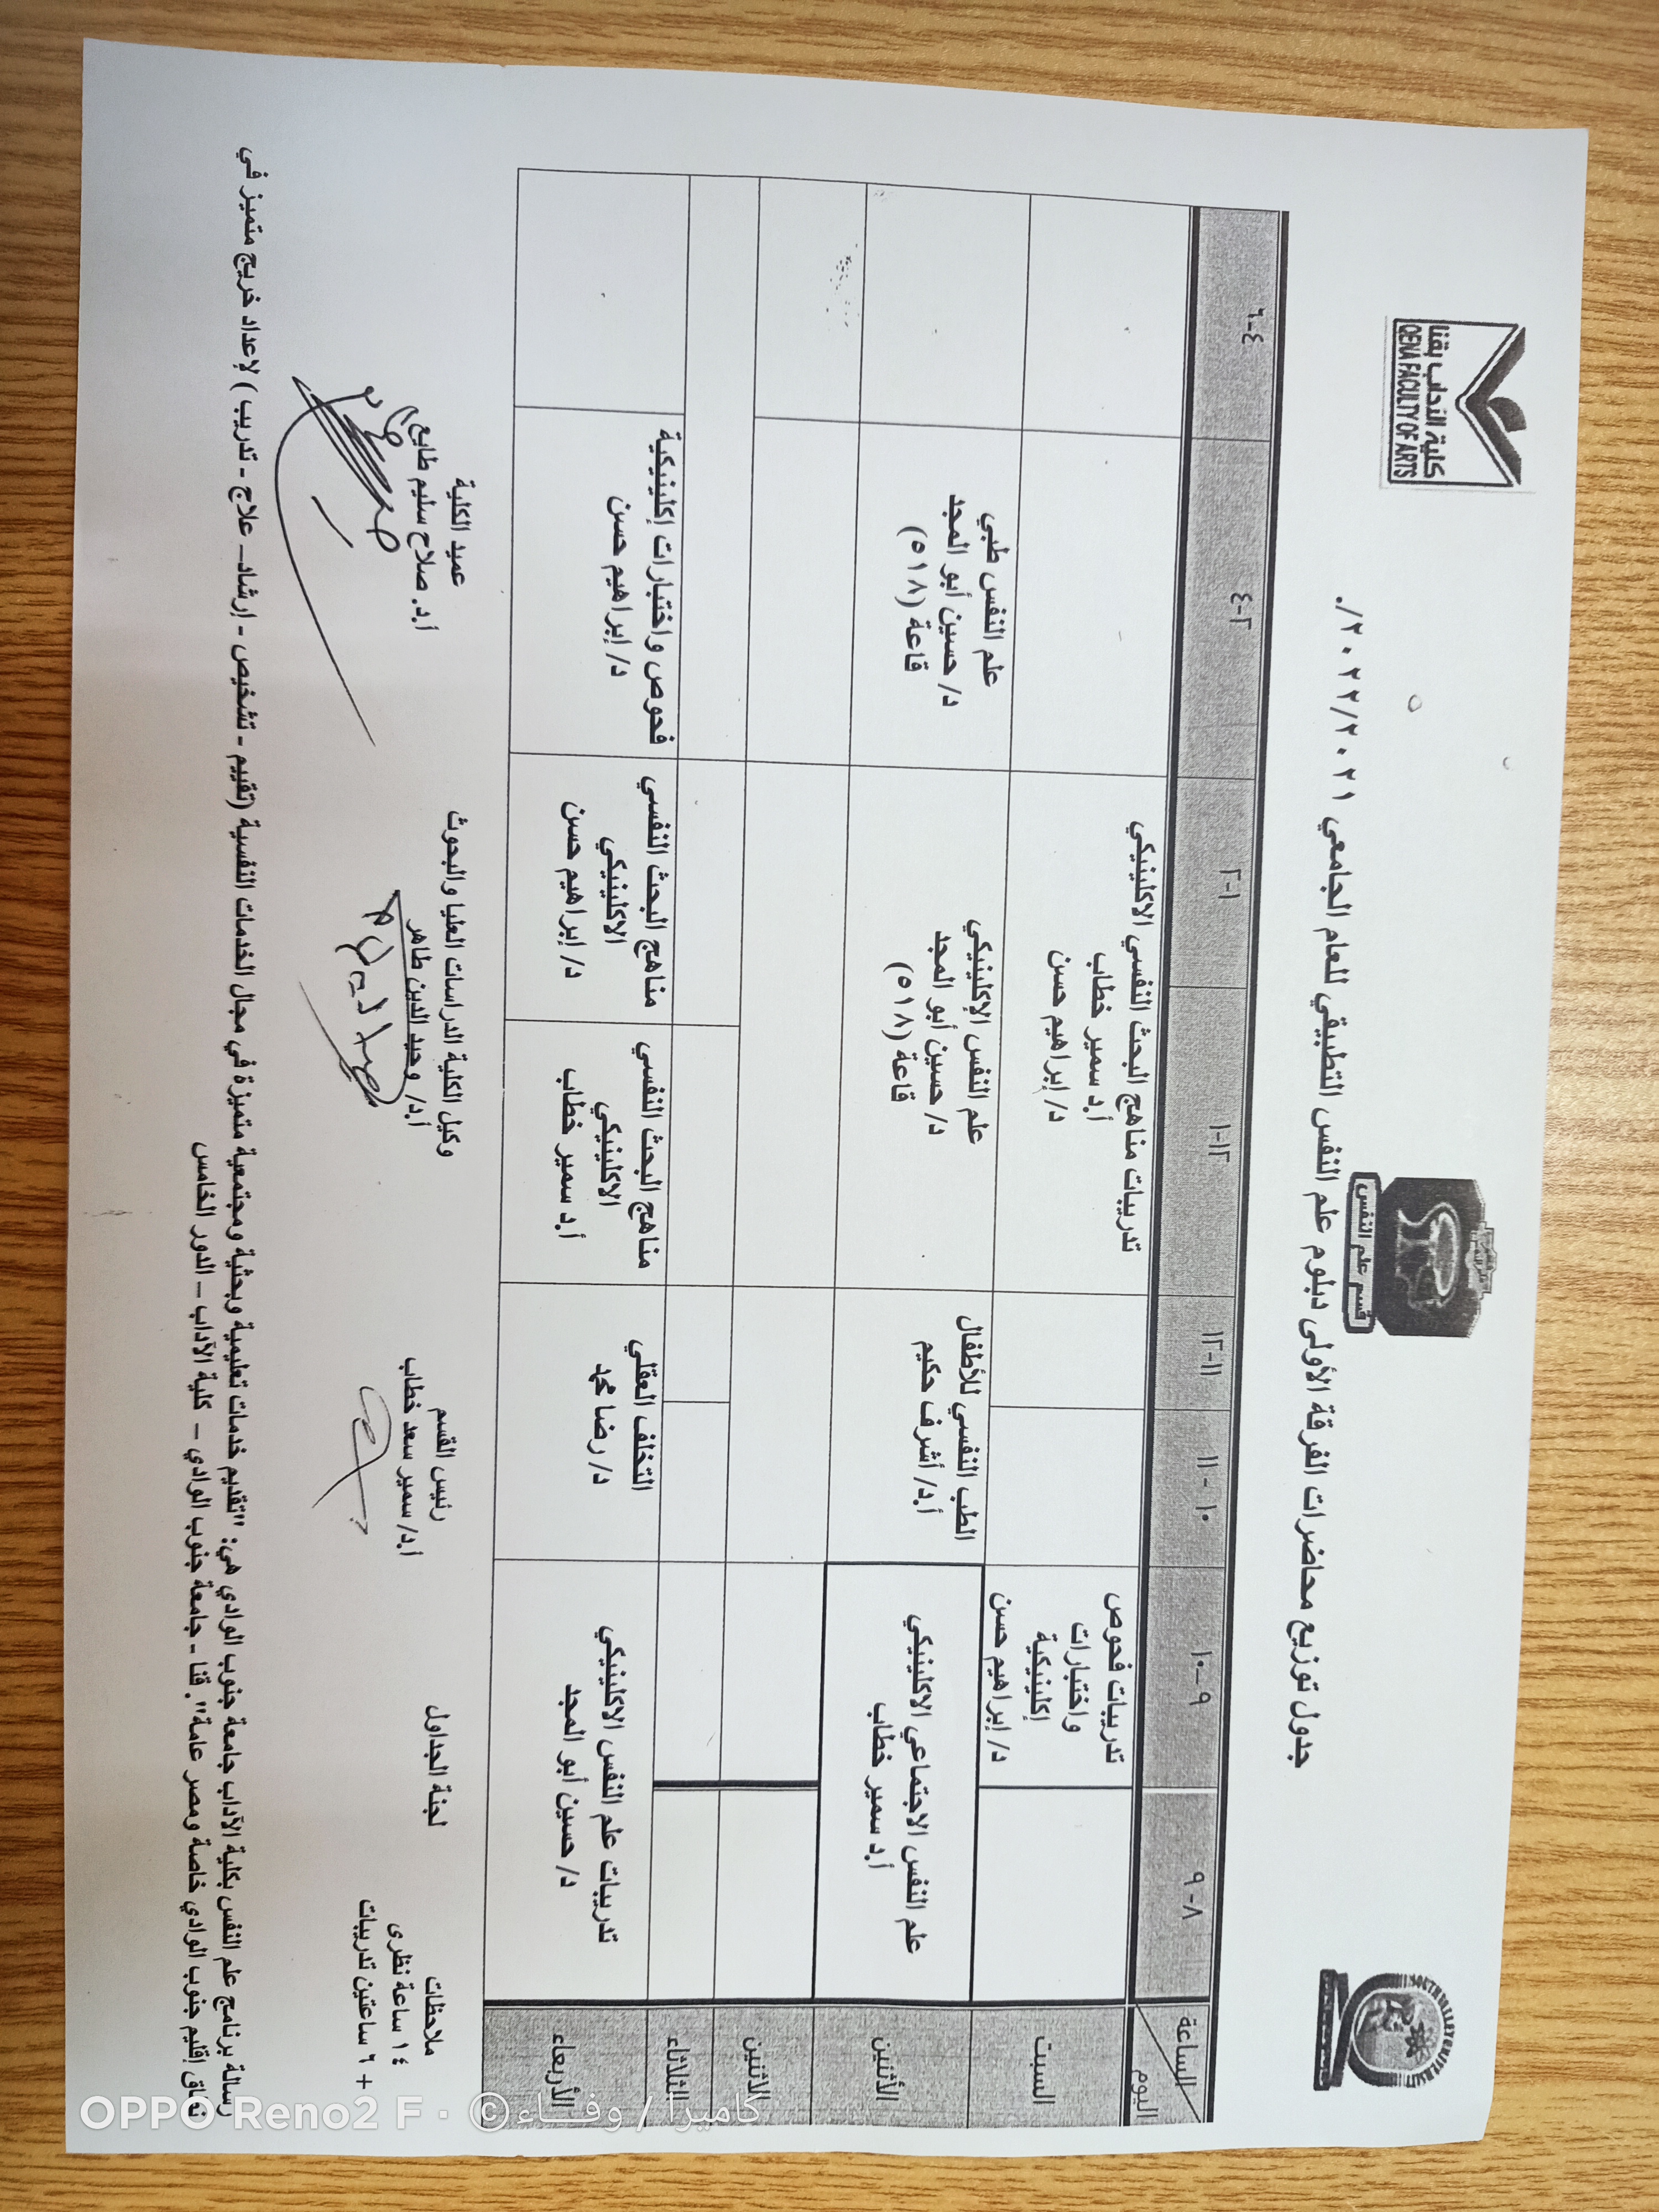 كلية الآداب بقنا
QENA FACULTY OF ARTS
قسم علم النفس
SOUTH VALLEY UNIVERSITY
جدول توزيع محاضرات الفرقة الأولى دبلوم علم النفس التطبيقي للعام الجامعي ٢٠٢٢/٢٠٢١/.
الساعة
اليوم
٨- ٩
٩-١٠
١٠ - ١١
١١-١٢
١٢-١
١-٢
٢-٤
٤-٦
السبت
تدريبات فحوص
واختبارات
إكلينيكية
د/ إبراهيم حسن
تدريبات مناهج البحث النفسي الاكلينيكي
أ.د سمير خطاب
د/ إبراهيم حسن
الأثنين
علم النفس الاجتماعي الاكلينيكي
أ.د سمير خطاب
الطب النفسي للأطفال
أ.د/ أشرف حكيم
علم النفس الإكلينيكي
د/ حسين أبو المجد
قاعة (٥١٨)
علم النفس طبي
د/ حسين أبو المجد
قاعة (٥١٨)
الاثنين
الثلاثاء
الأربعاء
تدريبات علم النفس الاكلينيكي
د/ حسين أبو المجد
التخلف العقلي
د/ رضا محمد
مناهج البحث النفسي
الاكلينيكي
أ.د سمير خطاب
مناهج البحث النفسي
الاكلينيكي
د/ إبراهيم حسن
فحوص واختبارات إكلينيكية
د/ إبراهيم حسن
ملاحظات
١٤ ساعة نظرى
+ ٦ ساعتين تدريبات
لجنة الجداول
رئيس القسم
أ.د/ سمير سعد خطاب
وكيل الكلية الدراسات العليا والبحوث
أ.د/ وحيد الدين طاهر
عميد الكلية
أ.د. صلاح سليم طايع
رسالة برنامج علم النفس بكلية الآداب جامعة جنوب الوادي هي: "تقديم خدمات تعليمية وبحثية ومجتمعية متميزة في مجال الخدمات النفسية (تقييم - تشخيص - إرشاد– علاج - تدريب ) لإعداد خريج متميز في
نطاق إقليم جنوب الوادي خاصة ومصر عامة". قنا - جامعة جنوب الوادي – كلية الآداب – الدور الخامس
OPPO Reno2 F · © كاميرا / وفـــاء